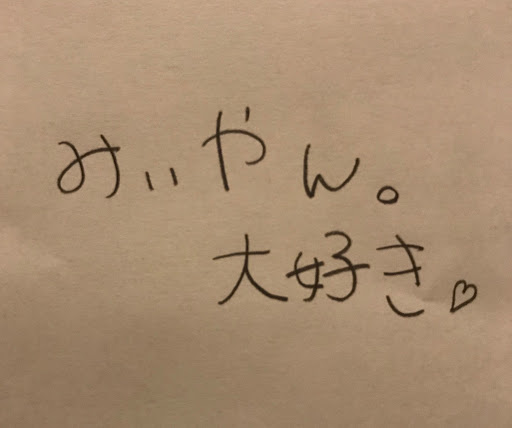 みぃやん。
大好き♡